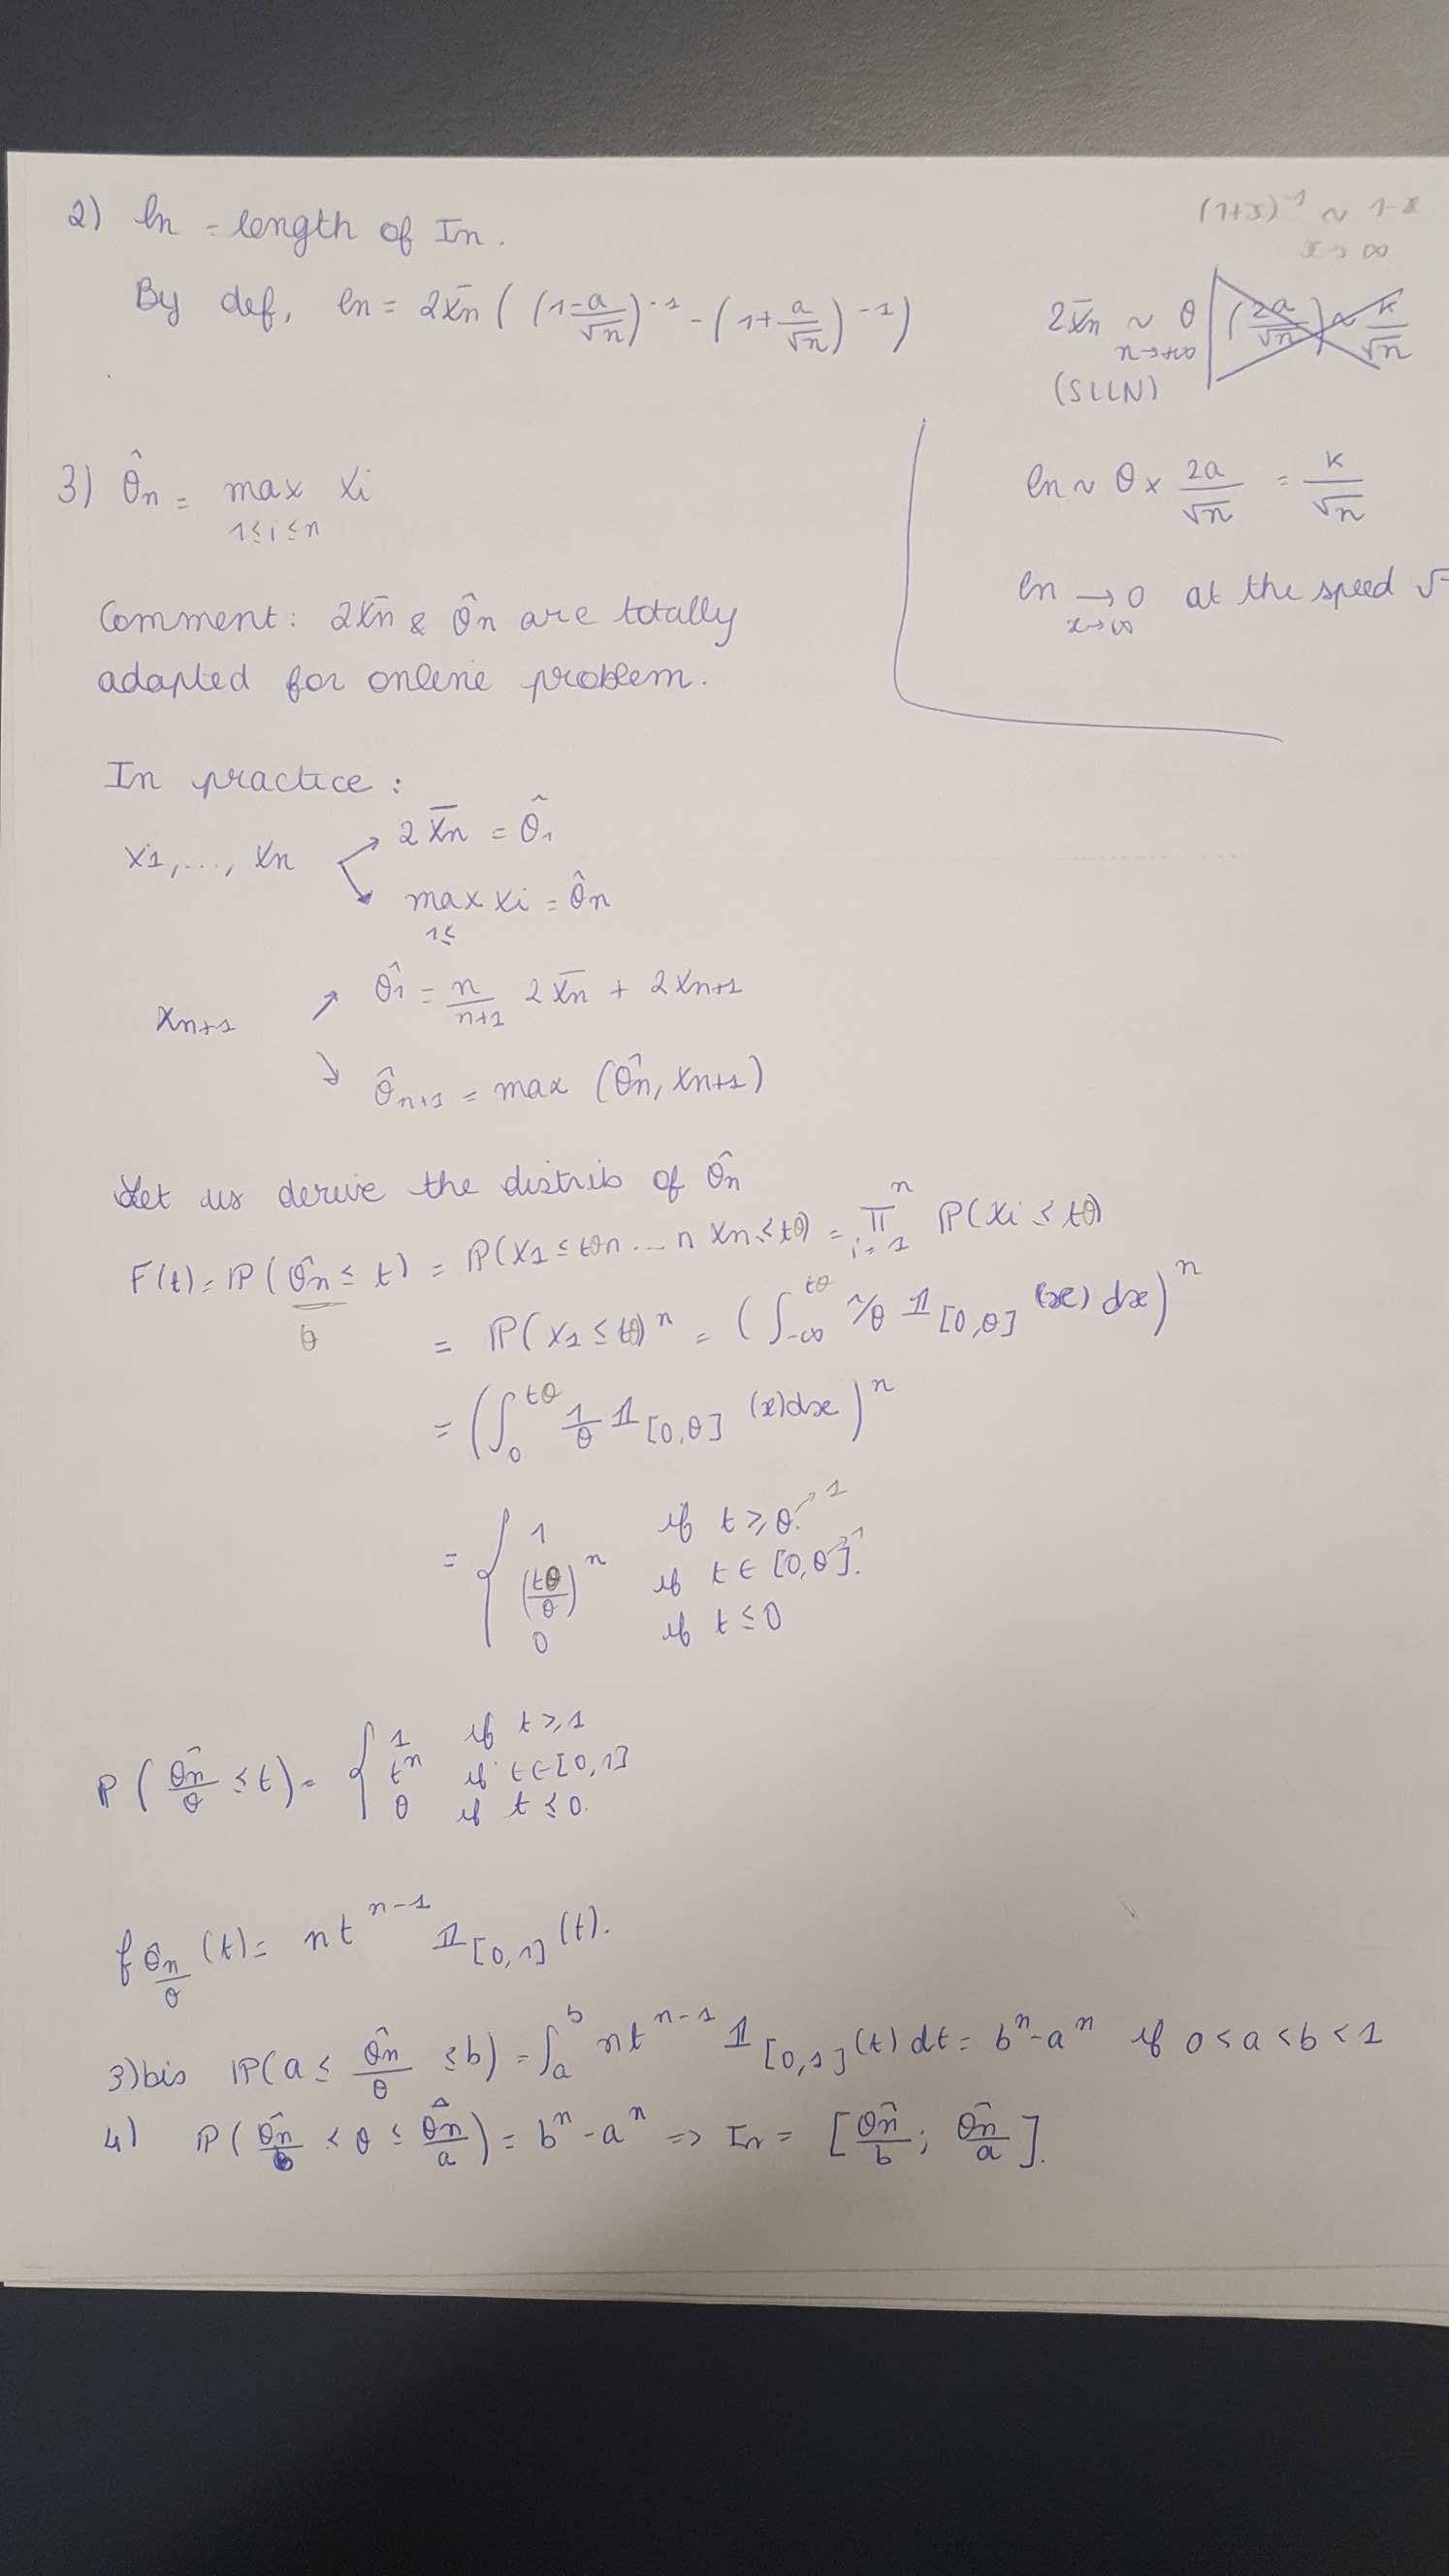 2) ln = length of In.
By def, ln = 2x̄n ( (1-a/√n)^-1 - (1+a/√n)^-1 )
(1+x)^-1 ~ 1-x
x→∞
2x̄n ~ θ (2a/√n) ~ k/√n
n→+∞
(SLLN)
ln ~ θ × 2a/√n = k/√n
ln → 0 at the speed √
x→∞
3) θ̂n = max xi
1≤i≤n
Comment: 2x̄n & θ̂n are totally
adapted for online problem.
In practice :
x1,..., xn ↗ 2x̄n = θ̂1
↘ max xi = θ̂n
1≤
xn+1 ↗ θ̂1 = n/n+1 2x̄n + 2xn+1
↘ θ̂n+1 = max (θ̂n, xn+1)
Let us derive the distrib of θ̂n
F(t) = ℙ(θ̂n/θ ≤ t) = ℙ(x1 ≤ tθ ∩ ... ∩ xn ≤ tθ) = ∏_{i=1}^n ℙ(xi ≤ tθ)
= ℙ(x1 ≤ tθ)^n = (∫_{-∞}^{tθ} 1/θ 𝟙[0,θ] (x) dx)^n
= (∫_0^{tθ} 1/θ 𝟙[0,θ] (x)dx)^n
= { 1 if t ≥ θ. → 1
(tθ/θ)^n if t ∈ [0,θ]. → 1
0 if t ≤ 0
ℙ(θ̂n/θ ≤ t) = { 1 if t ≥ 1
t^n if t ∈ [0,1]
0 if t ≤ 0.
f θ̂n/θ (t) = n t^n-1 𝟙[0,1] (t).
3)bis ℙ(a ≤ θ̂n/θ ≤ b) = ∫_a^b n t^n-1 𝟙[0,1] (t) dt = b^n - a^n if 0 < a < b < 1
4) ℙ(θ̂n/b < θ ≤ θ̂n/a) = b^n - a^n => In = [θ̂n/b ; θ̂n/a].